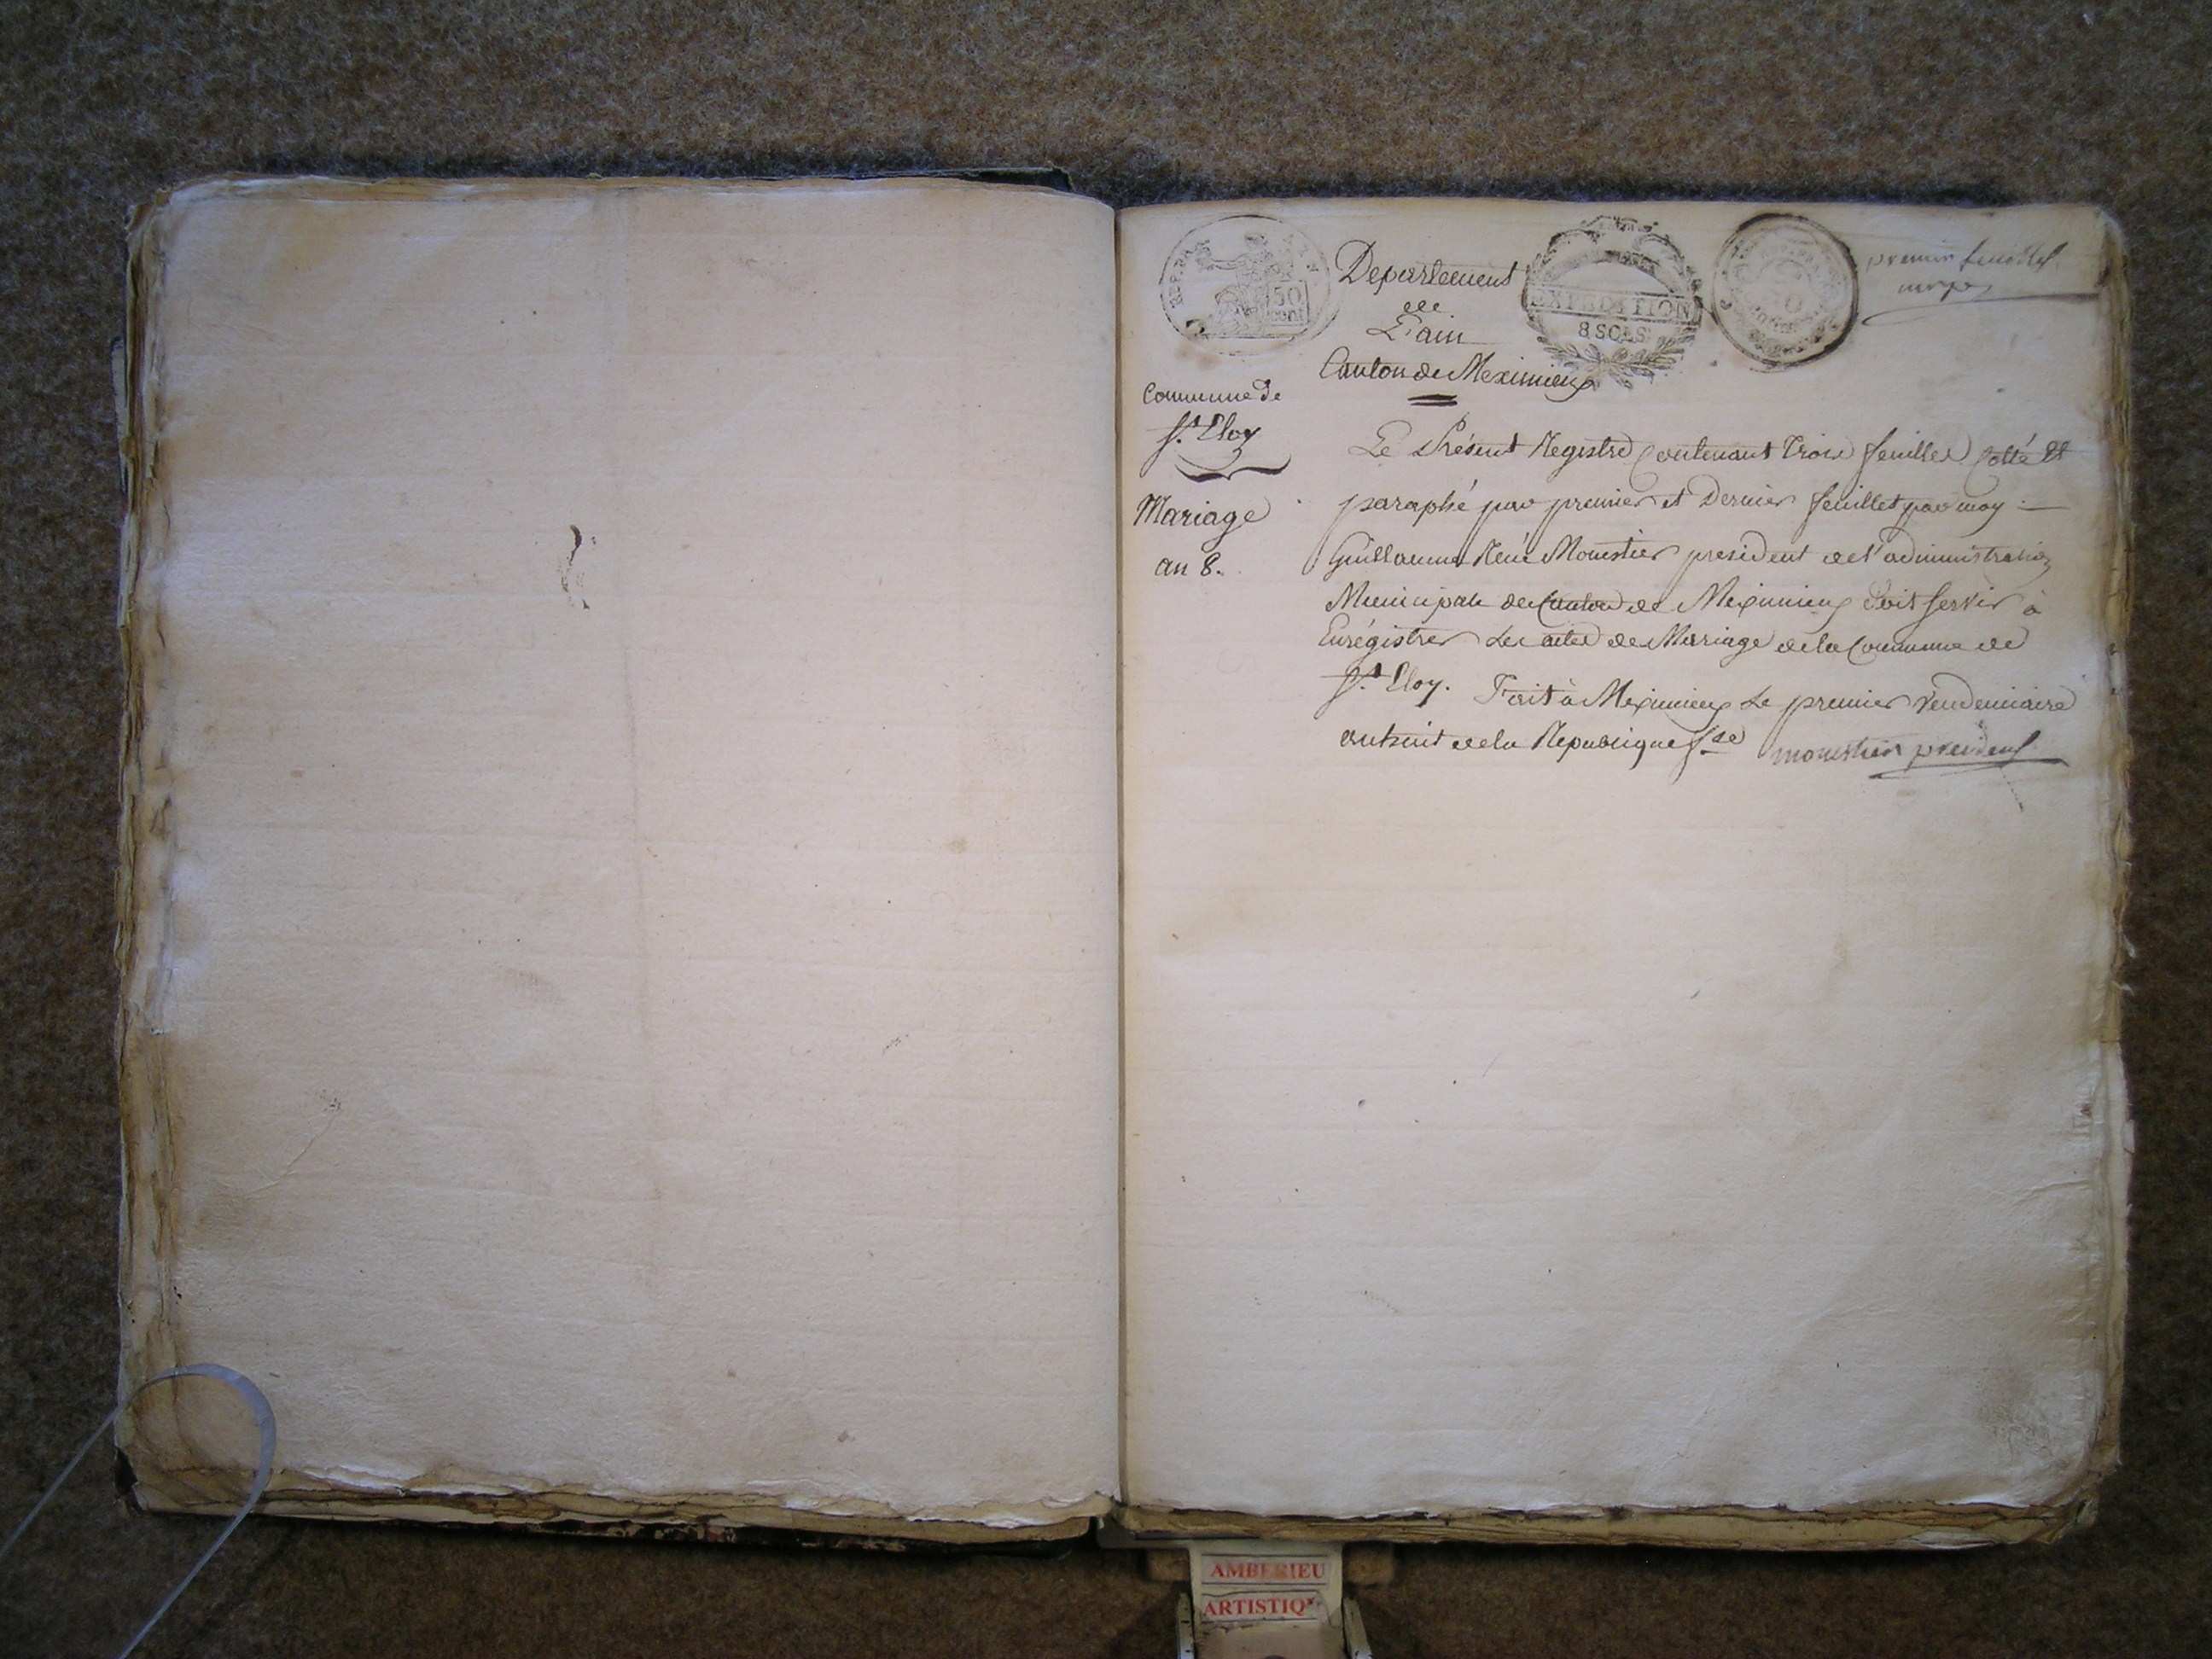 REP. FRA
50
cent
Departement
de
L'ain
Canton de Meximieux
EXPEDITION
8 SOLS
premier feuillet
Commune de
St. Eloy
Mariage
an 8.
Le Présent Registre Contenant Trois feuilles Cotté et
paraphé par premier et Dernier feuillet par moy
Guillaume René Monestier president de l'administration
Municipale de Canton de Meximieux Doit servir à
Enrégistrer les actes de Mariage de la Commune de
St. Eloy. Fait à Meximieux Le premier Vendemiaire
an huit de la Republique fse monestier president
AMBERIEU
ARTISTIQ